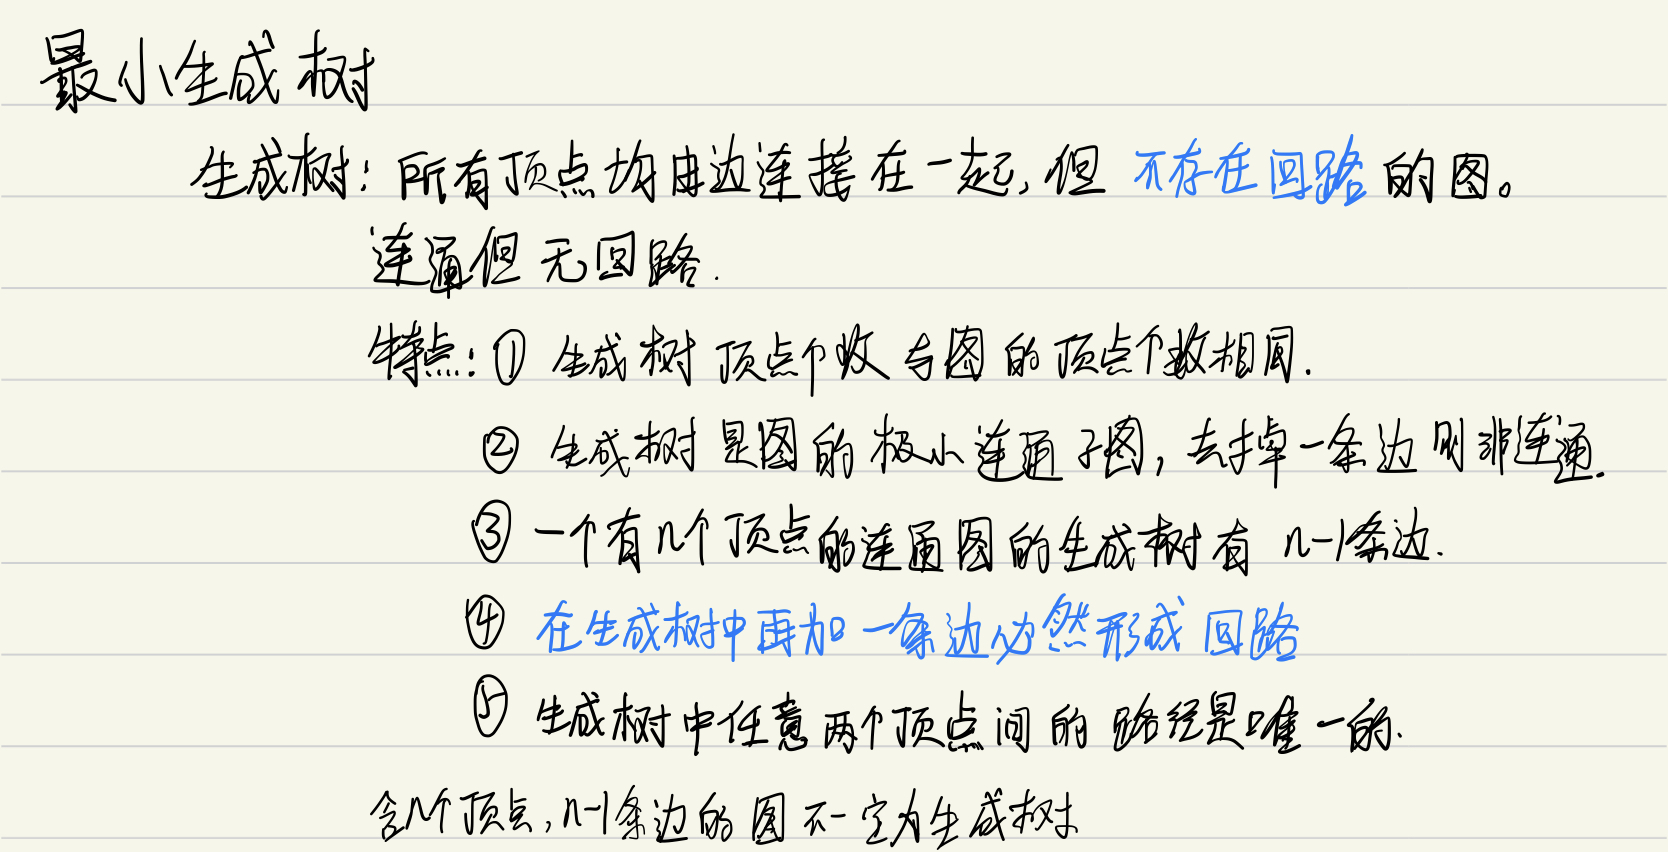 最小生成树
生成树：所有顶点均由边连接在一起，但不存在回路的图。
连通但无回路.
特点：① 生成树顶点个数与图的顶点个数相同.
② 生成树是图的极小连通子图，去掉一条边则非连通.
③ 一个有n个顶点的连通图的生成树有 n-1条边.
④ 在生成树中再加一条边必然形成回路
⑤ 生成树中任意两个顶点间的路径是唯一的.
含n个顶点，n-1条边的图不一定为生成树